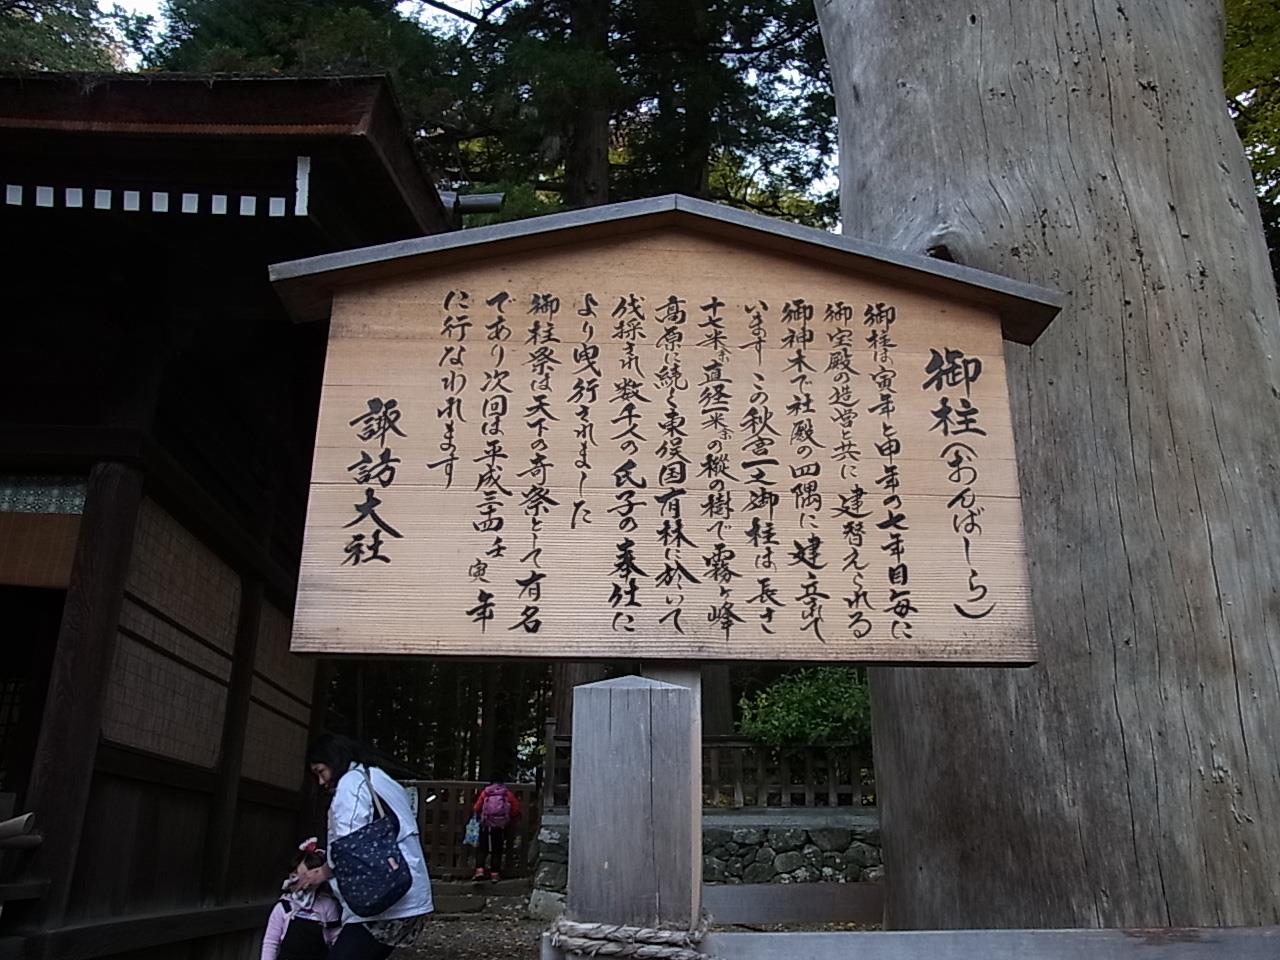 御柱(おんばしら)
御柱は寅年と申年の七年目毎に
御宝殿の造営と共に建替えられる
御神木で社殿の四隅に建立されて
います この秋宮一之御柱は長さ
十七米余直経一米余の樅の樹で霧ヶ峰
高原に続く東俣国有林に於いて
伐採され数千人の氏子の奉仕に
より曳行されました
御柱祭は天下の奇祭として有名
であり次回は平成三十四壬寅年
に行なわれます
諏訪大社